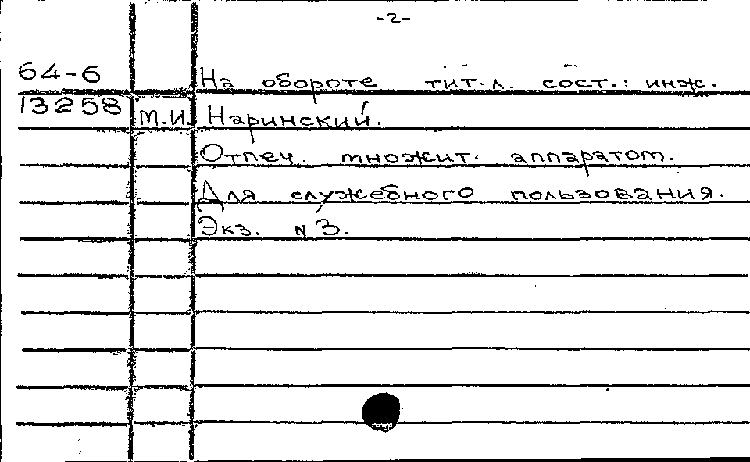 -2-
64-6 На обороте тит. л. сост.: инж.
13258 М.И. Наринский.
Отпеч. множит. аппаратом.
Для служебного пользования.
Экз. N 3.